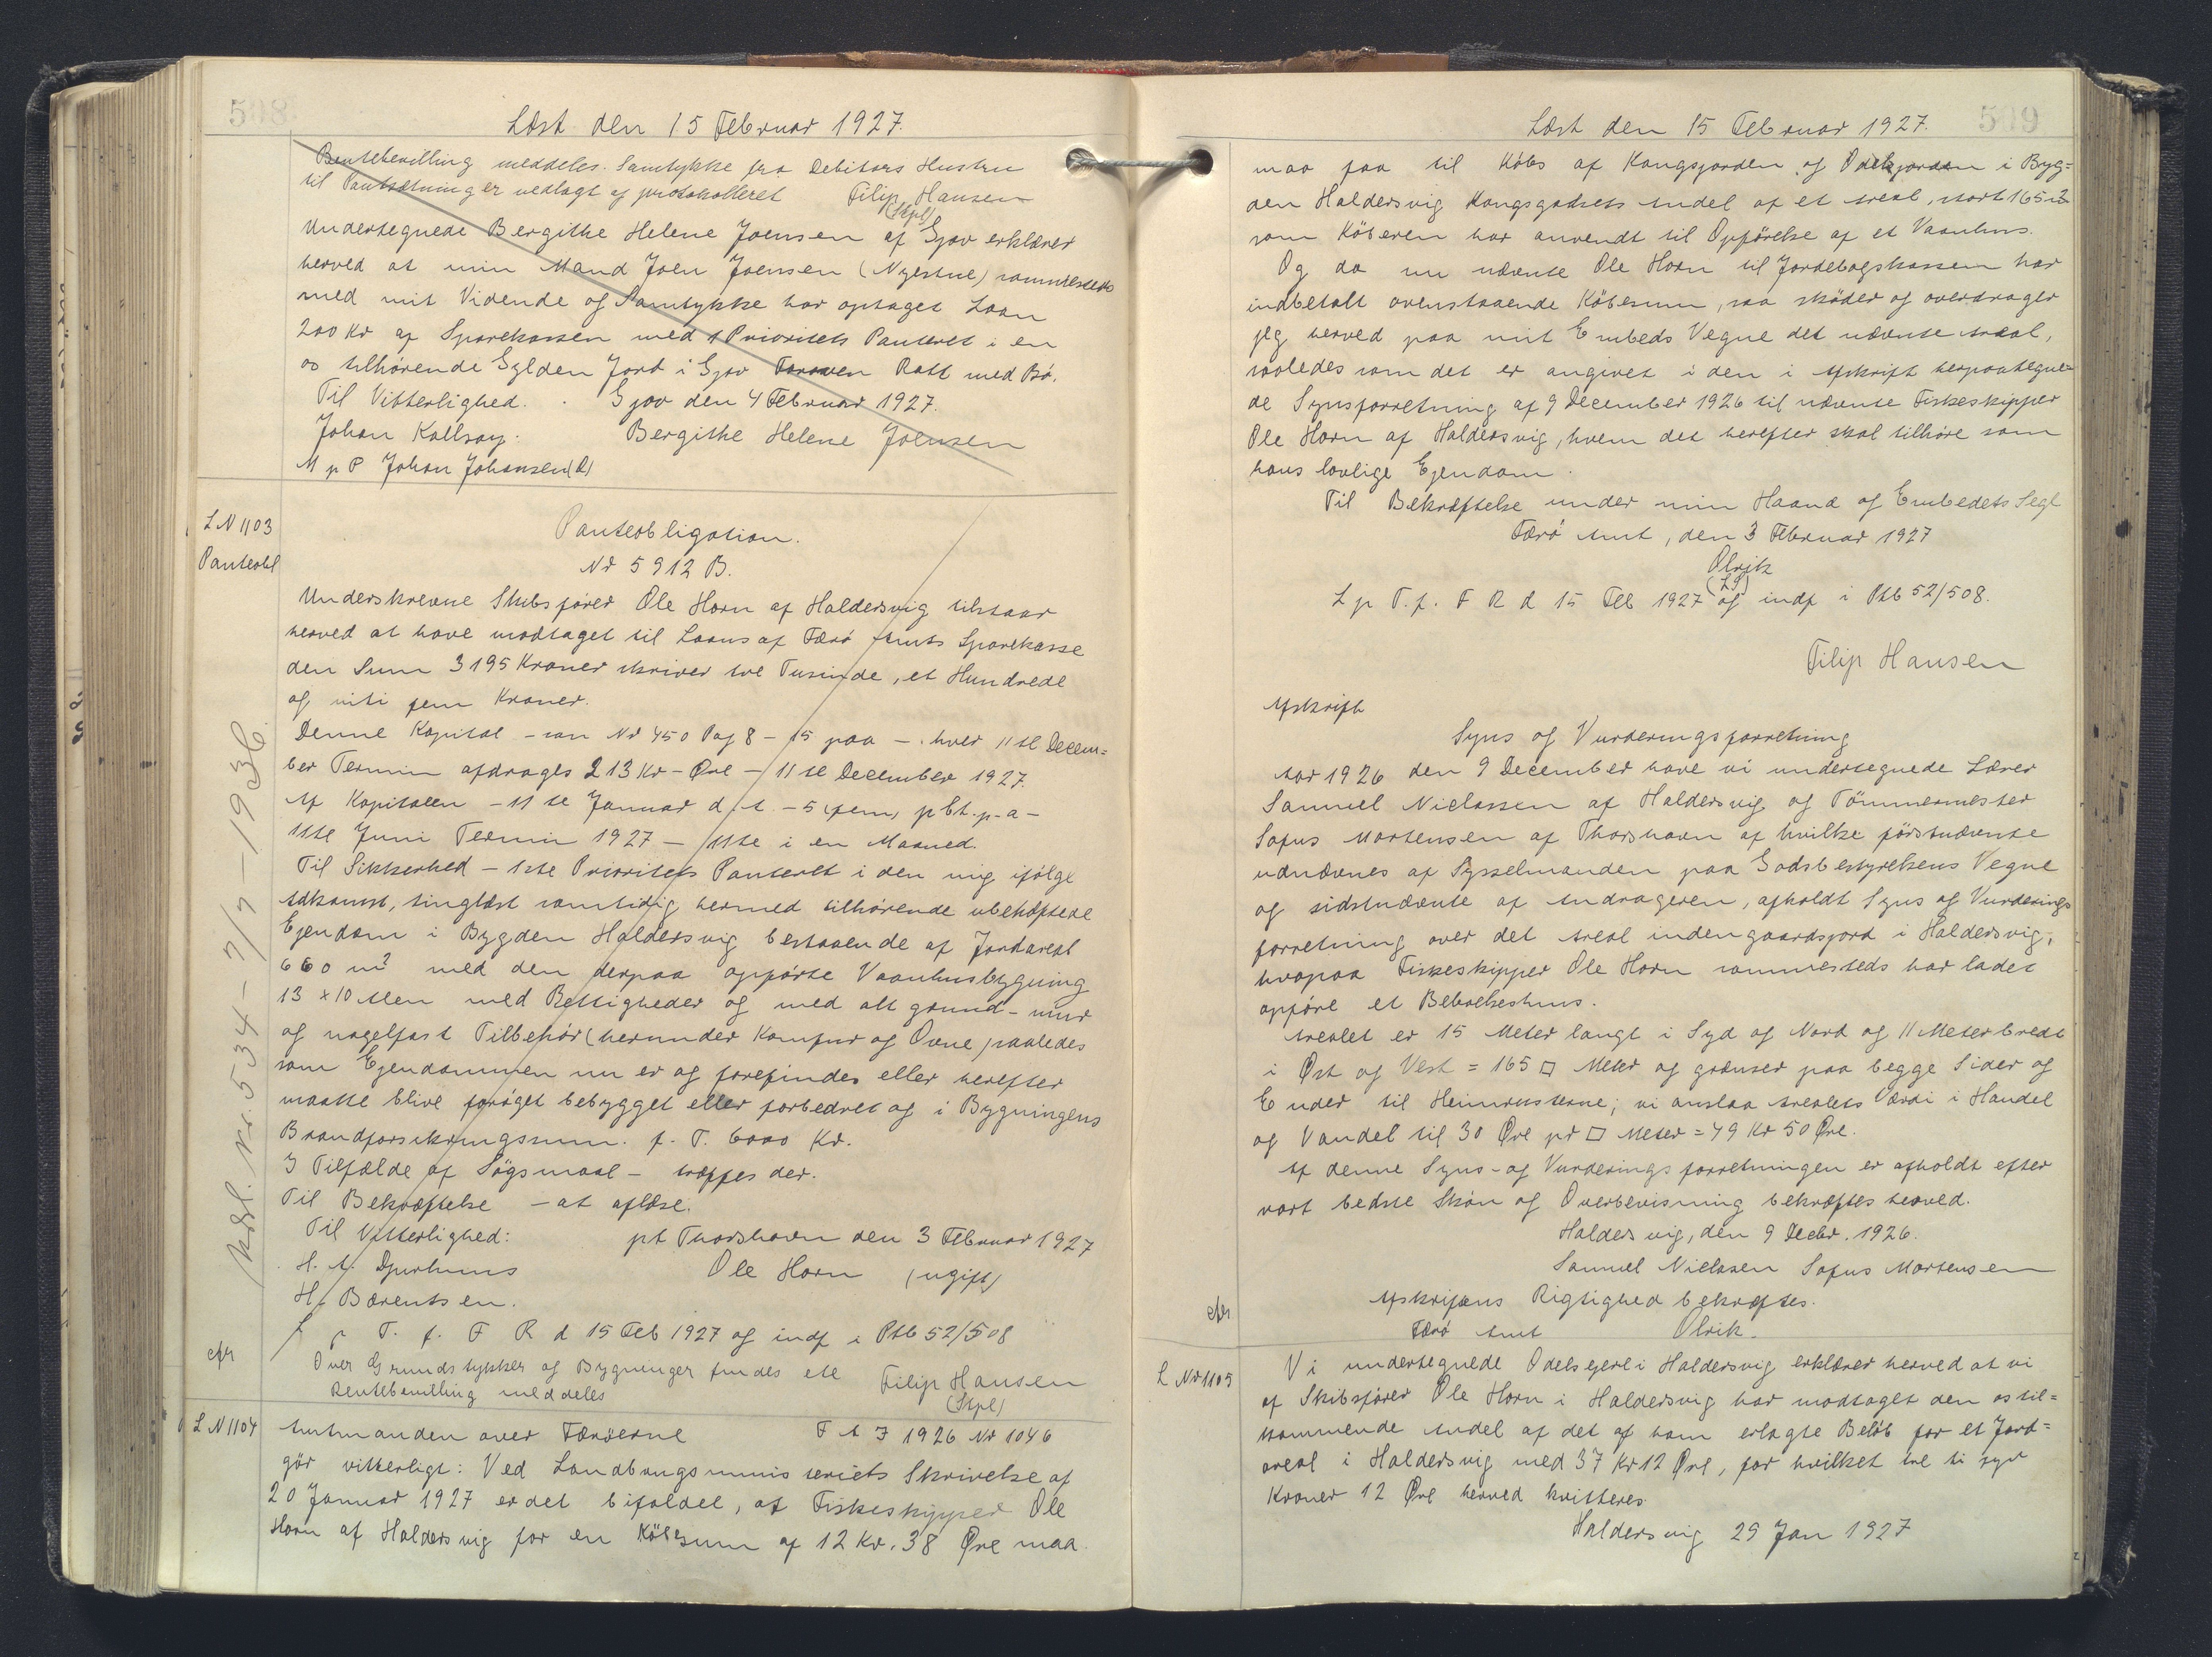 508
Læst den 15 Februar 1927.
Rentebevilling meddeles. Samtykke fra Debitors Hustru
til Pantsætning er vedlagt og protokolleret Filip Hansen
(Stpl)
Undertegnede Bergithe Helene Joensen af Gjov erklærer
herved at min Mand Joen Joensen (Nyestue) sammesteds
med mit Vidende og Samtykke har optaget Laan
200 Kr af Sparekassen med 1 Prioritets Panteret i en
os tilhørende Gylden Jord i Gjov Foroven Ratt med Bö.
Til Vitterlighed. Gjov den 4 Februar 1927.
Johan Kallsoy. Bergithe Helene Joensen
M p P Johan Johansen (R)
L N 1103
Panteobl
Panteobligation.
Nr 5912 B.
Underskrevne Skibsfører Ole Horn af Haldersvig tilstaar
herved at have modtaget til Laans af Færø Amts Sparekasse
den Sum 3195 Kroner skriver tre Tusinde, et Hundrede
og niti fem Kroner.
Denne Kapital - som Nr 450 Pag 8 - 15 paa - . hver 11te Decem=
ber Termin afdrages 213 Kr - Øre - 11te December 1927.
Af Kapitalen - 11te Januar d. A. - 5 (fem) pCt. p. a -
11te Juni Termin 1927 - 11te i en Maaned.
Til Sikkerhed - 1ste Prioritets Panteret i den mig ifølge
Adkomst, tinglæst samtidig hermed tilhørende ubehæftede
Ejendom i Bygden Haldersvig bestaaende af Jordareal
660 m² med den derpaa opførte Vaanhusbygning
13 x 10 Alen med Rettigheder og med alt grund- mur
og nagelfast Tilbehør (herunder Komfur og Ovne) saaledes
som Ejendommen nu er og forefindes eller herefter
maatte blive forøget bebygget eller forbedret og i Bygningens
Brandforsikringssum. f. T. 6000 Kr.
I Tilfælde af Søgsmaal - træffes der.
Til Bekræftelse - at aflæse.
Til Vitterlighed: pt Thorshavn den 3 Februar 1927
H. A. Djurhuus Ole Horn (ugift)
H. Bærentsen.
L p T. f. F R d 15 Feb 1927 og indf i Ptb 52/508
cfr
Over Grundstykker og Bygninger findes ell
Rentebevilling meddeles Filip Hansen
(Stpl)
kvl. Nr. 534 - 7/7 - 1936.
L N 1104
Amtmanden over Færøerne F A J 1926 Nr 1046
gör vitterligt: Ved Landbrugsministeriets Skrivelse af
20 Januar 1927 er det bifaldet, at Fiskeskipper Ole
Horn af Haldersvig for en Købesum af 12 Kr. 38 Øre maa
509
Læst den 15 Februar 1927.
maa faa til Købs af Kongsjorden og Odelsjorden i Byg=
den Haldersvig Kongsgodsets Andel af et Areal, stort 165 m²
som Køberen har anvendt til Opførelse af et Vaanhus.
Og da nu nævnte Ole Horn til Jordebogskassen har
indbetalt ovenstaaende Købesum, saa skøder og overdrager
jeg herved paa mit Embeds Vegne det nævnte Areal,
saaledes som det er angivet i den i Afskrift herpaategne=
de Synsforretning af 9 December 1926 til nævnte Fiskeskipper
Ole Horn af Haldersvig, hvem det herefter skal tilhøre som
hans lovlige Ejendom.
Til Bekræftelse under min Haand og Embedets Segl
Færø Amt, den 3 Februar 1927
Olrik
(LS)
L p T. f. F R d 15 Feb 1927 og indf i Ptb 52/508.
Filip Hansen
Afskrift
Syns og Vurderingsforretning
Aar 1926 den 9 December have vi undertegnede Lærer
Samuel Niclassen af Haldersvig og Tömmermester
Sofus Mortensen af Thorshavn af hvilke förstnævnte
udnævnes af Sysselmanden paa Godsbestyrelsens Vegne
og sidstnævnte af Andrageren, afholdt Syns og Vurderings
forretning over det Areal indengaardsjord i Haldersvig,
hvorpaa Fiskeskipper Ole Horn sammesteds har ladet
opføre et Beboelseshus.
Arealet er 15 Meter langt i Syd og Nord og 11 Meter bredt
i Øst og Vest = 165 □ Meter og grænser paa begge Sider og
Ender til Heimrusterne; vi anslaa Arealets Værdi i Handel
og Vandel til 30 Øre pr □ Meter = 49 Kr 50 Øre.
At denne Syns- og Vurderingsforretningen er afholdt efter
vort bedste Skøn og Overbevisning bekræftes herved.
Haldersvig, den 9 Decbr. 1926.
Samuel Niclasen Sofus Mortensen
Afskriftens Rigtighed bekræftes.
cfr
Færø Amt Olrik.
L Nr 1105
Vi undertegnede Odelsejere i Haldersvig erklærer herved at vi
af Skibsfører Ole Horn i Haldersvig har modtaget den os til=
kommende Andel af det af ham erlagte Beløb for et Jord=
areal i Haldersvig med 37 Kr 12 Øre, for hvilket tre ti syv
Kroner 12 Øre herved kvitteres
Haldersvig 29 Jan 1927